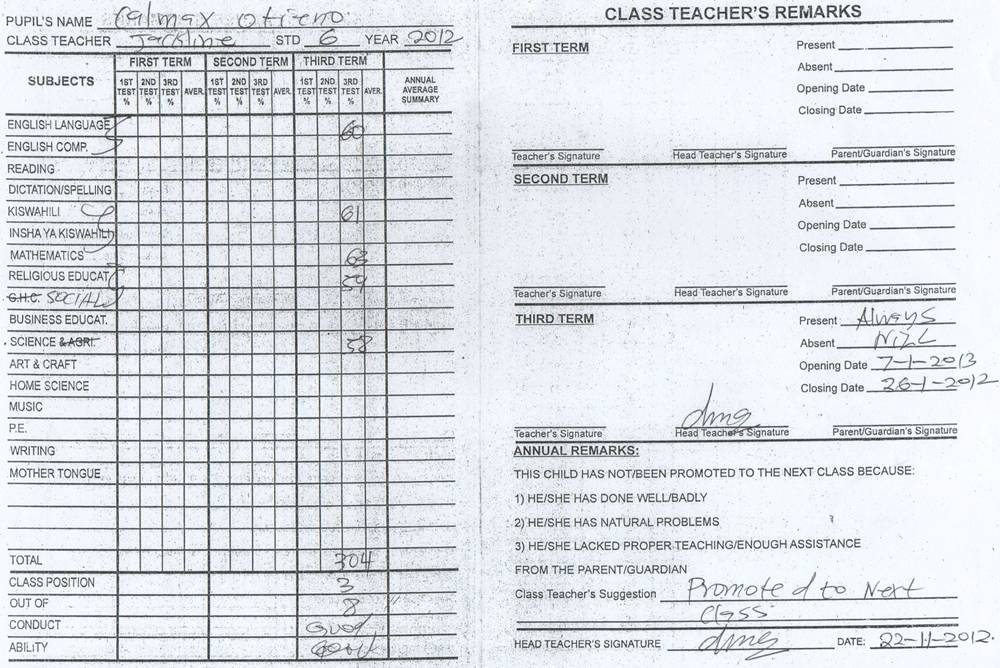 PUPIL'S NAME Calmax Otieno
CLASS TEACHER Jackline STD 6 YEAR 2012
SUBJECTS FIRST TERM SECOND TERM THIRD TERM ANNUAL AVERAGE SUMMARY
1ST TEST % 2ND TEST % 3RD TEST % AVER. 1ST TEST % 2ND TEST % 3RD TEST % AVER. 1ST TEST % 2ND TEST % 3RD TEST % AVER.
ENGLISH LANGUAGE 60
ENGLISH COMP.
READING
DICTATION/SPELLING
KISWAHILI 61
INSHA YA KISWAHILI
MATHEMATICS 63
RELIGIOUS EDUCAT. 59
G.H.C. SOCIAL
BUSINESS EDUCAT.
SCIENCE & AGRI. 58
ART & CRAFT
HOME SCIENCE
MUSIC
P.E.
WRITING
MOTHER TONGUE
TOTAL 304
CLASS POSITION 3
OUT OF 8
CONDUCT Good
ABILITY Good
CLASS TEACHER'S REMARKS
FIRST TERM
Present
Absent
Opening Date
Closing Date
Teacher's Signature Head Teacher's Signature Parent/Guardian's Signature
SECOND TERM
Present
Absent
Opening Date
Closing Date
Teacher's Signature Head Teacher's Signature Parent/Guardian's Signature
THIRD TERM
Present Always
Absent NIL
Opening Date 7-1-2013
Closing Date 26-1-2012
Teacher's Signature Head Teacher's Signature Parent/Guardian's Signature
ANNUAL REMARKS:
THIS CHILD HAS NOT/BEEN PROMOTED TO THE NEXT CLASS BECAUSE:
1) HE/SHE HAS DONE WELL/BADLY
2) HE/SHE HAS NATURAL PROBLEMS
3) HE/SHE LACKED PROPER TEACHING/ENOUGH ASSISTANCE
FROM THE PARENT/GUARDIAN
Class Teacher's Suggestion Promoted to Next
Class
HEAD TEACHER'S SIGNATURE DATE: 22-11-2012.